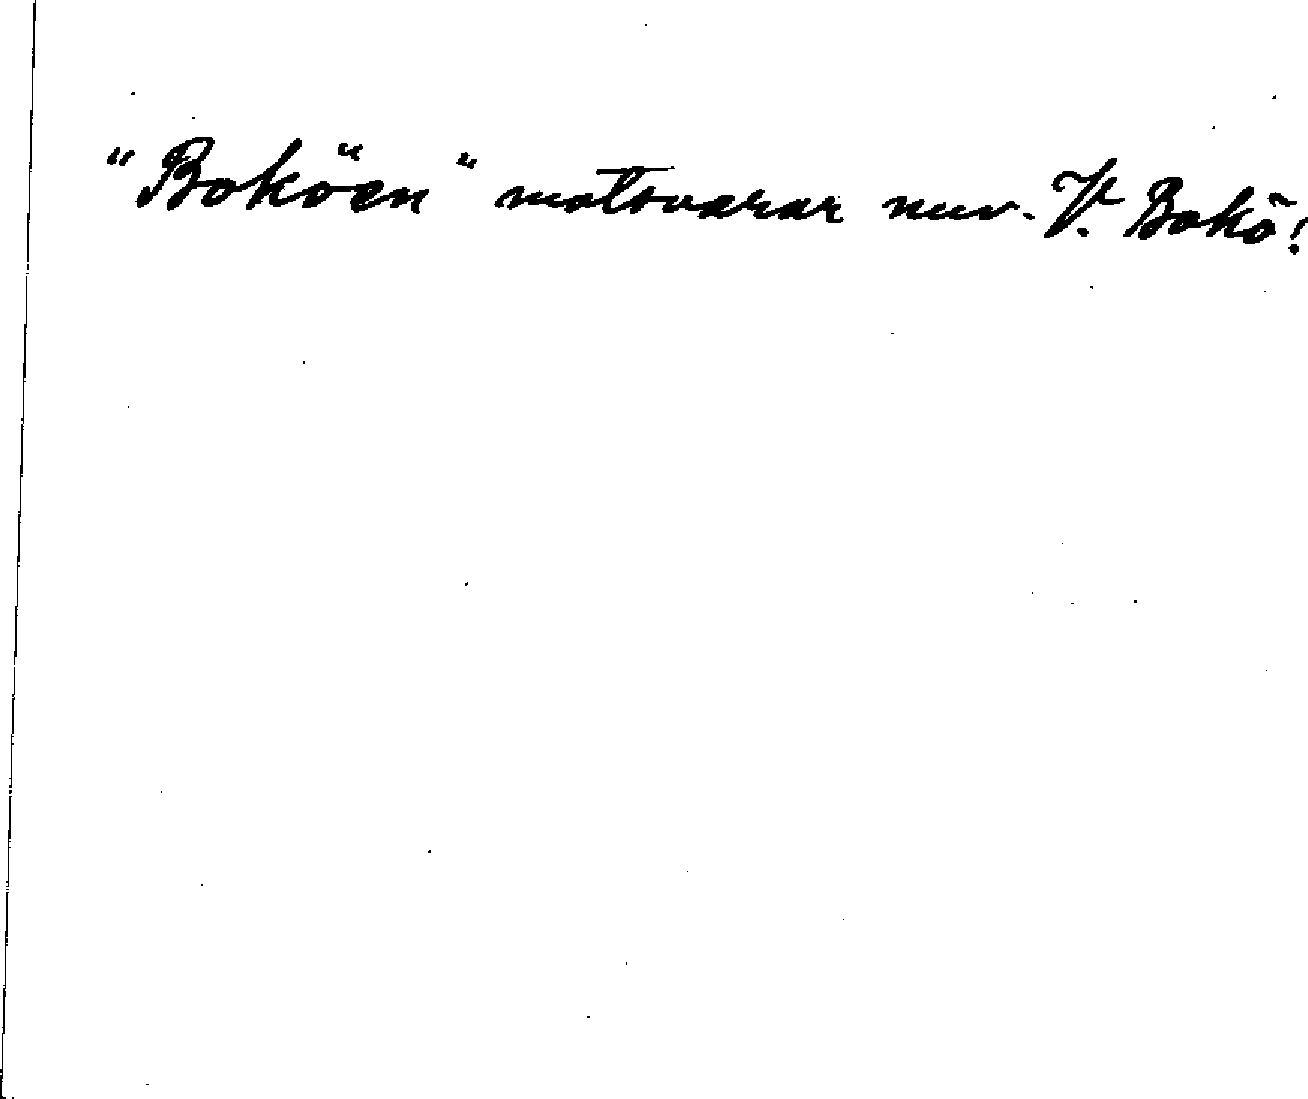 "Boköen" motsvarar nuv. V. Bokö!